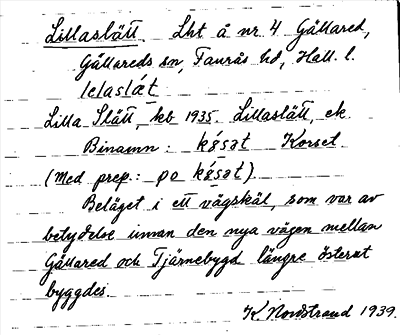 Lillaslätt. Lht å nr 4 Gällared,
Gällareds sn, Faurås hd, Hall. l.
lelaslæt
Lilla Slätt, kb 1935. Lillaslätt, ek.
Binamn: kǻsat Korset.
(Med prep.: po kǻsat).
Beläget i ett vägskäl, som var av
betydelse innan den nya vägen mellan
Gällared och Tjärnebygd längre österut
byggdes.
K. Nordstrand 1939.